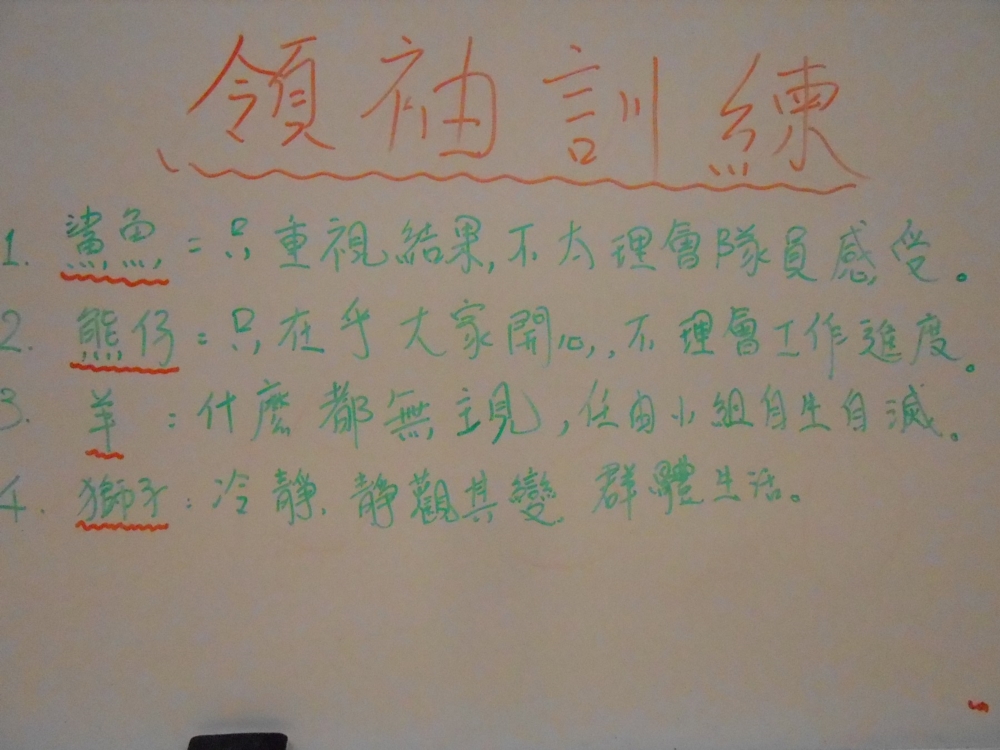 領袖訓練
1. 鯊魚 = 只重視結果,不太理會隊員感受。
2. 熊仔 : 只在乎大家開心,不理會工作進度。
3. 羊 : 什麼都無主見,任由小組自生自滅。
4. 獅子 : 冷靜,靜觀其變,群體生活。